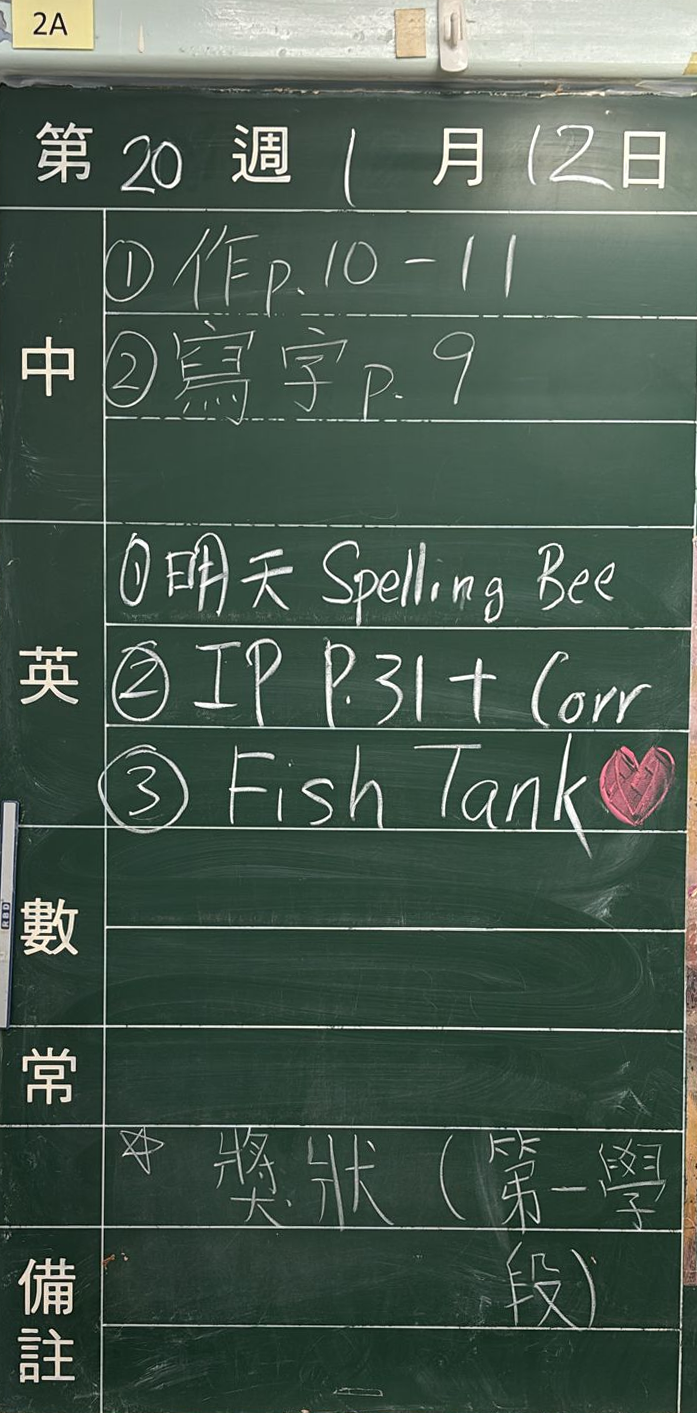 2A
第 20 週 1 月 12 日
中
① 作 p. 10 - 11
② 寫字 p. 9
英
① 明天 Spelling Bee
② IP P.31 + Corr
③ Fish Tank
數
RBD
常
☆ 獎狀 (第一學
段)
備註